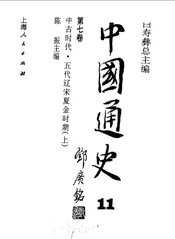 白寿彝总主编
中國通史
11
第七卷
中古时代·五代辽宋夏金时期(上)
陈 振主编
鄧廣銘
上海人民出版社